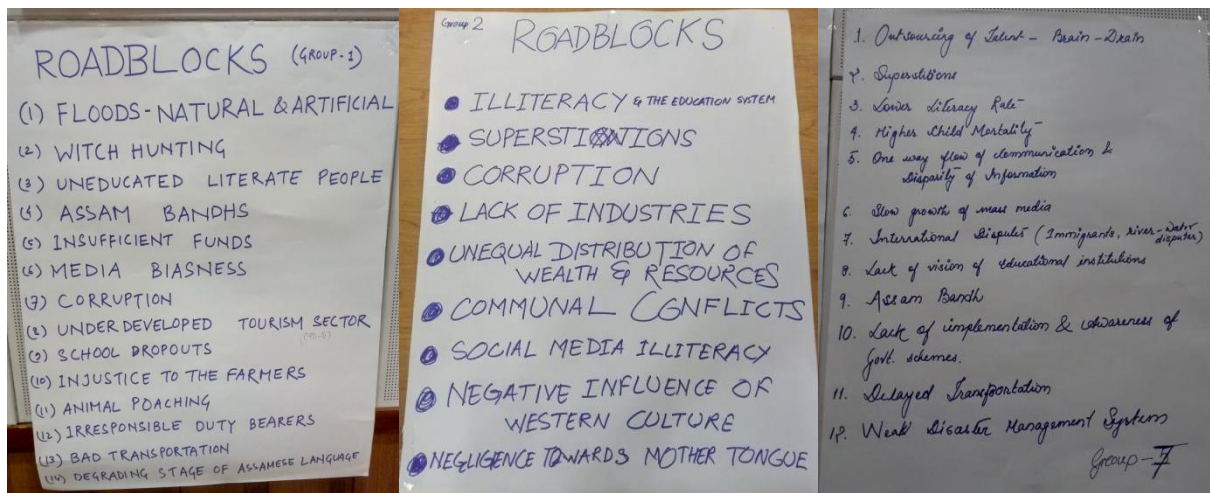 ROADBLOCKS (GROUP-1)
(1) FLOODS-NATURAL & ARTIFICIAL
(2) WITCH HUNTING
(3) UNEDUCATED LITERATE PEOPLE
(4) ASSAM BANDHS
(5) INSUFFICIENT FUNDS
(6) MEDIA BIASNESS
(7) CORRUPTION
(8) UNDERDEVELOPED TOURISM SECTOR
(9) SCHOOL DROPOUTS
(10) INJUSTICE TO THE FARMERS
(11) ANIMAL POACHING
(12) IRRESPONSIBLE DUTY BEARERS
(13) BAD TRANSPORTATION
(14) DEGRADING STAGE OF ASSAMESE LANGUAGE
Group 2
ROADBLOCKS
ILLITERACY & THE EDUCATION SYSTEM
SUPERSTITIONS
CORRUPTION
LACK OF INDUSTRIES
UNEQUAL DISTRIBUTION OF
WEALTH & RESOURCES
COMMUNAL CONFLICTS
SOCIAL MEDIA ILLITERACY
NEGATIVE INFLUENCE OF
WESTERN CULTURE
NEGLIGENCE TOWARDS MOTHER TONGUE
1. Outsourcing of Talent - Brain-Drain
2. Superstitions
3. Lower Literacy Rate
4. Higher Child Mortality
5. One way flow of Communication &
Disparity of Information
6. Slow growth of mass media
7. International Disputes (Immigrants, river-water
disputes)
8. Lack of vision of educational institutions
9. Assam Bandh
10. Lack of implementation & awareness of
Govt. schemes.
11. Delayed Transportation
12. Weak Disaster Management System
Group - 7